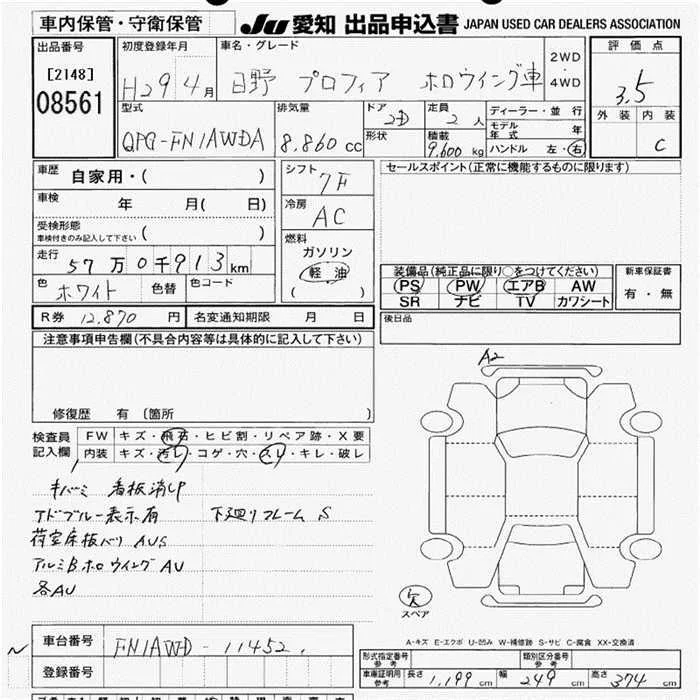 車内保管・守衛保管
JU 愛知 出品申込書 JAPAN USED CAR DEALERS ASSOCIATION
出品番号
[2148]
08561
初度登録年月
H29 4月
車名・グレード
日野 プロフィア ホロウイング車
2WD
・
4WD
評価点
3.5
外装 内装
C
型式
QPG-FN1AWDA
排気量
8.860 cc
ドア
2D
形状
定員
2 人
積載
9,600 kg
ディーラー・並行
モデル年式 年
ハンドル 左・右
車歴 自家用・( )
車検 年 月( 日)
受検形態
車検付きのみ記入して下さい ( )
走行 57万0千913km
色 ホワイト 色替 色コード
シフト
7F
冷房
AC
燃料
ガソリン
軽油
( )
セールスポイント(正常に機能するものに限ります)
装備品(純正品に限り○をつけてください)
PS PW エアB AW
SR ナビ TV カワシート
新車保証書
有・無
R券 12,870 円 名変通知期限 月 日
後日品
注意事項申告欄(不具合内容等は具体的に記入して下さい)
修復歴 有 〔箇所 〕
検査員
記入欄
FW キズ・飛石・ヒビ割・リペア跡・X要
内装 キズ・汚レ・コゲ・穴・スレ・キレ・破レ
キバーミ 看板消しP
アドブルー表示有 下廻りフレーム S
荷室床板バリ AUS
アルミBホロウイングAU
各AU
A2
欠
スペア
A-キズ E-エクボ U-凹み W-補修跡 S-サビ C-腐食 XX-交換済
車台番号 FN1AWD-11452
登録番号
形式指定番号
参考
類別区分番号
参考
車庫証明用
参考
長さ 1,199 cm 幅 249 cm 高さ 374 cm